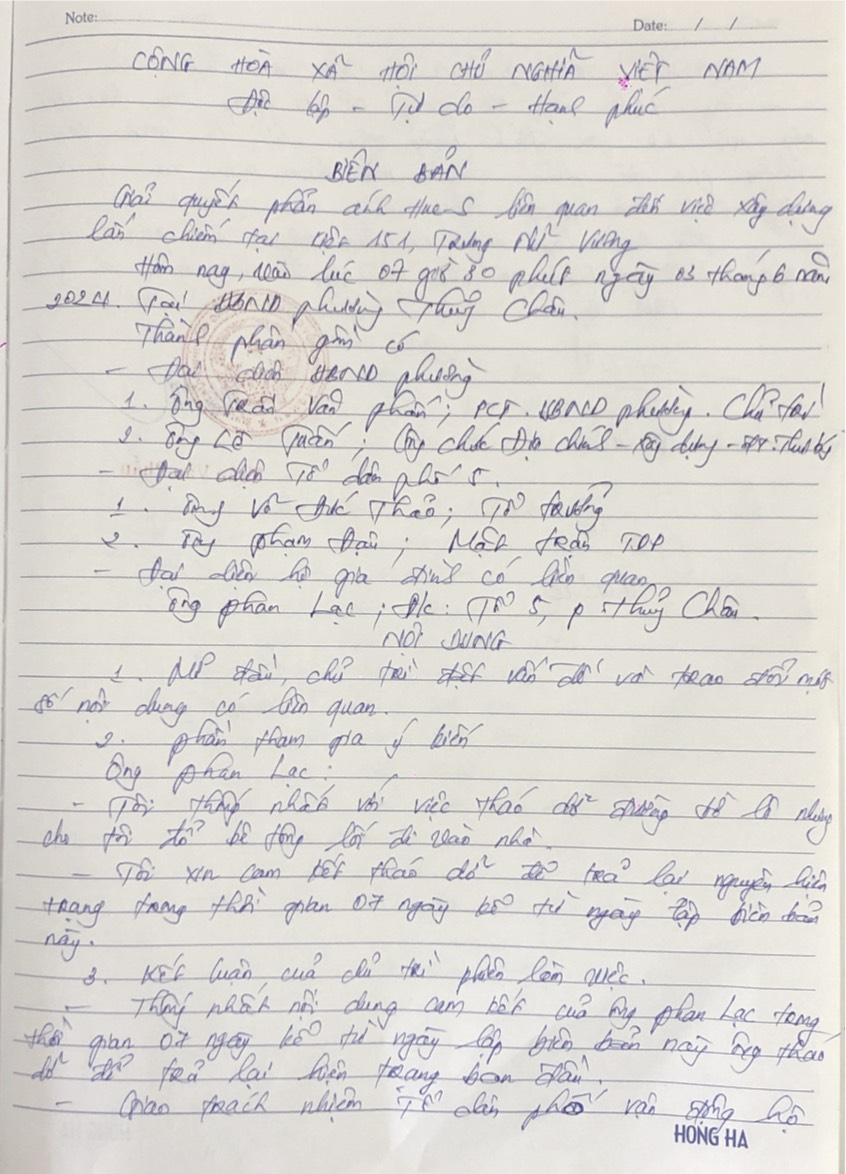 Note:
Date: / /
CỘNG HOÀ XÃ HỘI CHỦ NGHĨA VIỆT NAM
Độc lập - Tự do - Hạnh phúc
BIÊN BẢN
Giải quyết phản ánh Hue-S liên quan đến việc xây dựng
lấn chiếm tại kiệt 151, Trưng Nữ Vương
Hôm nay, vào lúc 07 giờ 30 phút ngày 03 tháng 6 năm
2024. Tại UBND phường Thuỷ Châu.
Thành phần gồm có
- Đại diện UBND phường
1. Ông Trần Văn Phấn; PCT. UBND phường. Chủ trì
2. Ông Lê Tuấn; Công chức Địa chính - Xây dựng - Thư ký
- Đại diện Tổ dân phố 5.
1. Ông Võ Đức Thảo; Tổ trưởng
2. Ông Phạm Đạn; Mặt trận TDP
- Đại diện hộ gia đình có liên quan
Ông Phan Lạc; Đ/c: Tổ 5, p. Thuỷ Châu.
NỘI DUNG
1. Mở đầu, chủ trì đặt vấn đề và trao đổi một
số nội dung có liên quan.
2. Phần tham gia ý kiến
Ông Phan Lạc:
- Tôi thống nhất với việc tháo dỡ đường bờ lô nhưng
cho tôi đổ bê tông lối đi vào nhà.
- Tôi xin cam kết tháo dỡ để trả lại nguyên hiện
trạng trong thời gian 07 ngày kể từ ngày lập biên bản
này.
3. Kết luận của chủ trì phiên làm việc.
- Thống nhất nội dung cam kết của ông Phan Lạc trong
thời gian 07 ngày kể từ ngày lập biên bản này ông tháo
dỡ để trả lại hiện trạng ban đầu.
- Giao trách nhiệm Tổ dân phố vận động hộ
HONG HA